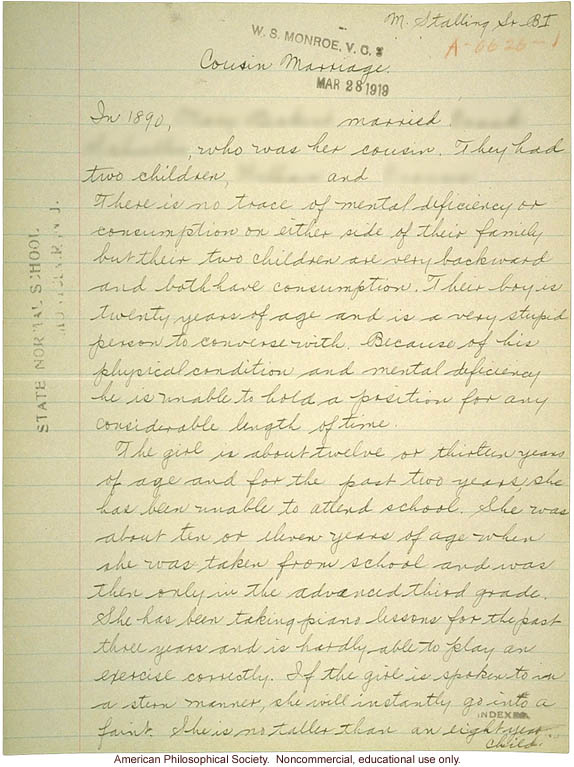 M. Stalling Sr. B I
A-6626-1
W. S. MONROE, V. C. S
Cousin Marriage.
MAR 28 1919
In 1890, married
, who was her cousin. They had
two children, and
There is no trace of mental deficiency or
consumption on either side of their family
but their two children are very backward
and both have consumption. Their boy is
twenty years of age and is a very stupid
person to converse with. Because of his
physical condition and mental deficiency
he is unable to hold a position for any
considerable length of time.
The girl is about twelve or thirteen years
of age and for the past two years she
has been unable to attend school. She was
about ten or eleven years of age when
she was taken from school and was
then only in the advanced third grade.
She has been taking piano lessons for the past
three years and is hardly able to play an
exercise correctly. If the girl is spoken to in
a stern manner, she will instantly go into a
faint. She is no taller than an eight year
child.
INDEXED
STATE NORMAL SCHOOL
N. J.
American Philosophical Society. Noncommercial, educational use only.